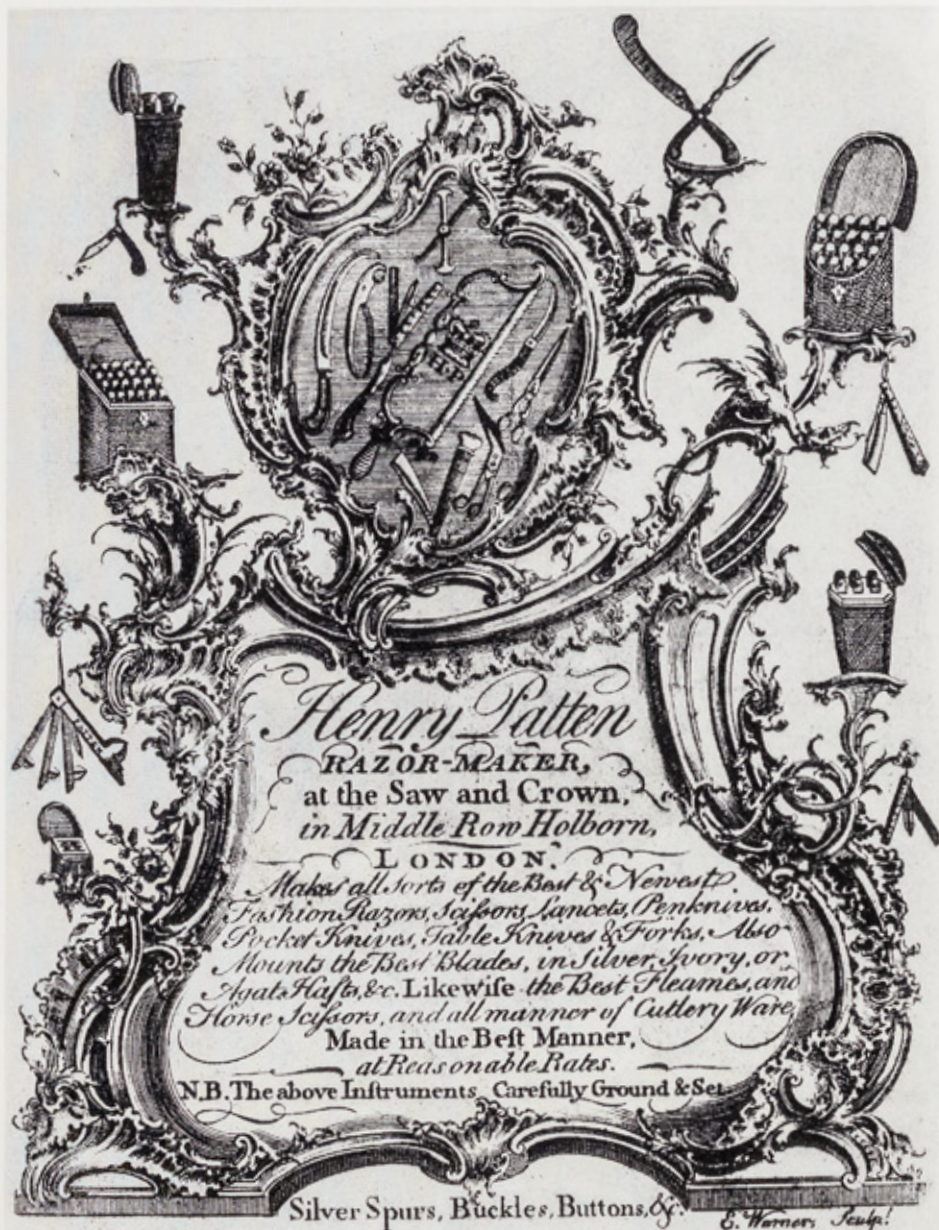 H·P
Henry Patten
RAZOR-MAKER,
at the Saw and Crown,
in Middle Row Holborn,
LONDON.
Makes all sorts of the Best & Newest
Fashion Razors, Scifsors, Lancets, Penknives,
Pocket Knives, Table Knives & Forks, Also
Mounts the Best Blades, in Silver, Ivory, or
Agat Hafts, &c. Likewiſe the Best Fleames, and
Horse Scifsors, and all manner of Cutlery Ware,
Made in the Beſt Manner,
at Reasonable Rates.
N.B. The above Inſtruments Carefully Ground & Set
Silver Spurs, Buckles, Buttons, &c.
E. Warner, Sculp!